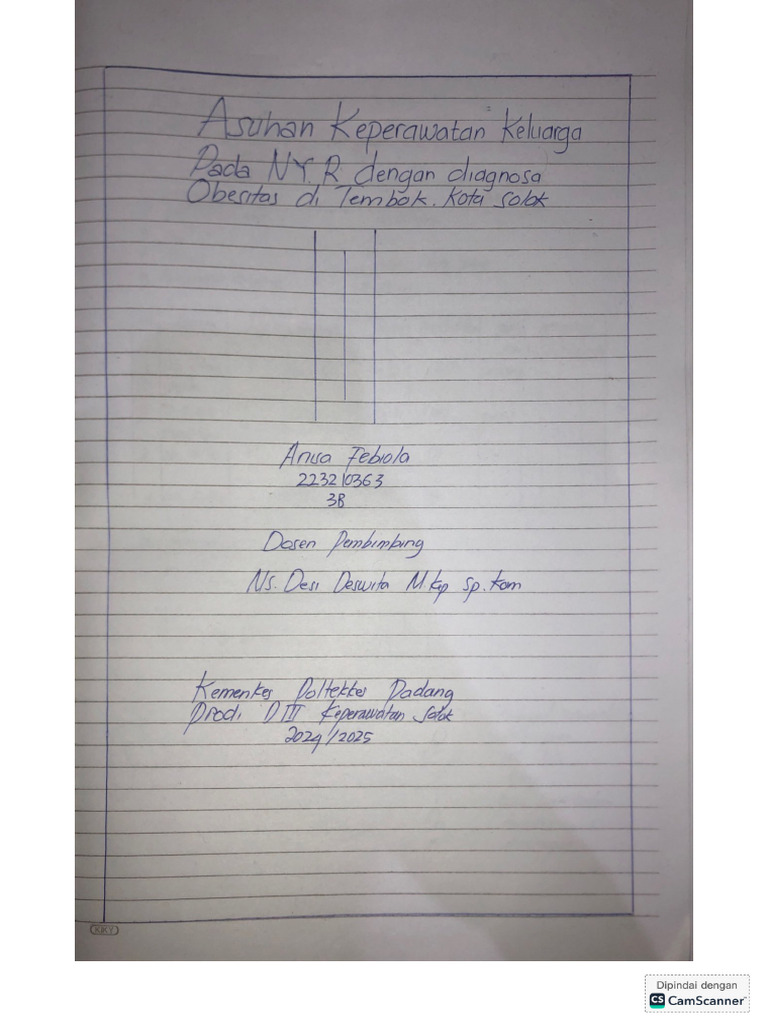 Asuhan Keperawatan Keluarga
Pada NY. R dengan diagnosa
Obesitas di Tembok. Kota Solok
Anisa Febiola
223210363
3B
Dosen Pembimbing
Ns. Desi Deswita M kep sp. kom
Kemenkes Poltekkes Padang
Prodi DIII Keperawatan Solok
2024/2025
KIKY
Dipindai dengan
CS CamScanner